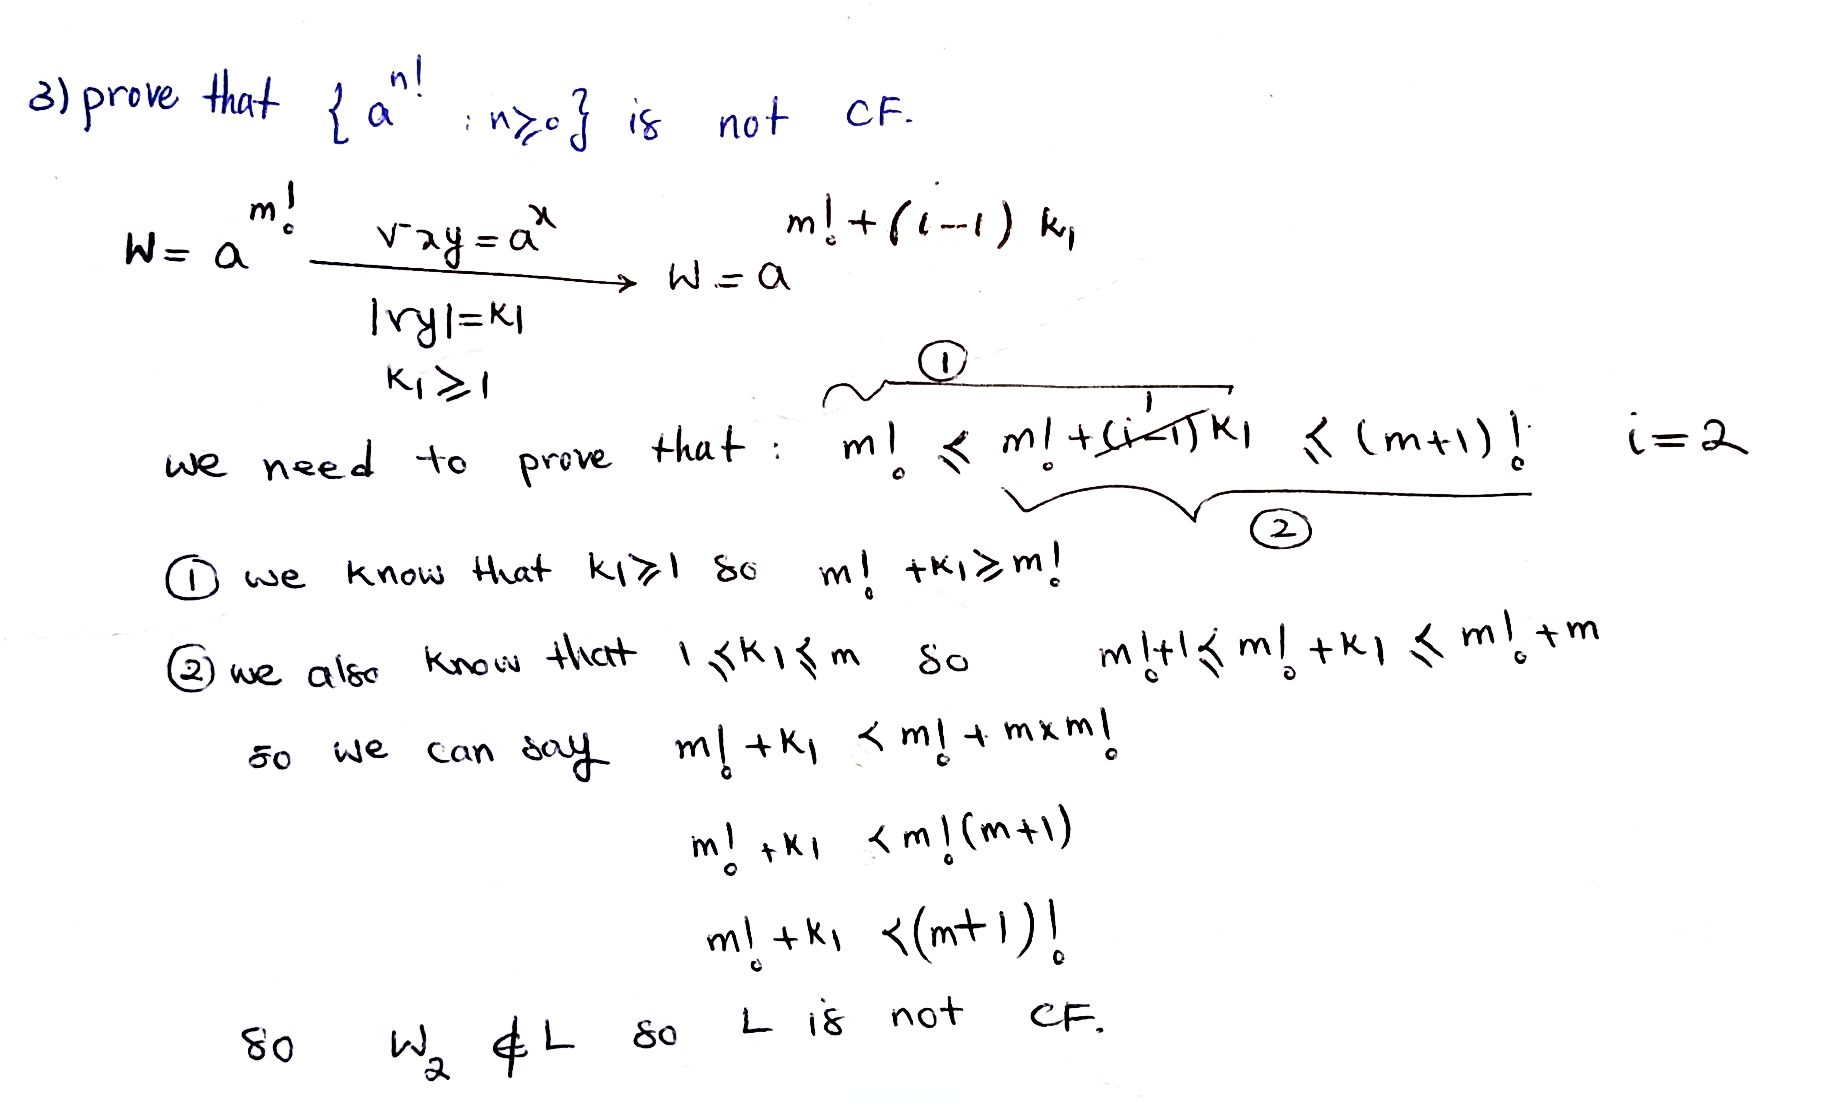 3) prove that { a^n! : n≥0} is not CF.
W = a^m! vxy = a^x |vy| = k1 k1 ≥ 1 → W = a^m!+(i-1) k1
①
we need to prove that : m! ≤ m! + (i-1) 1 k1 ≤ (m+1)! i=2
②
① we know that k1≥1 so m! +k1 ≥ m!
② we also know that 1 ≤ k1 ≤ m so m!+1 ≤ m! + k1 ≤ m! + m
so we can say m! + k1 < m! + m x m!
m! + k1 < m! (m+1)
m! + k1 < (m+1)!
so W2 ∉ L so L is not CF.